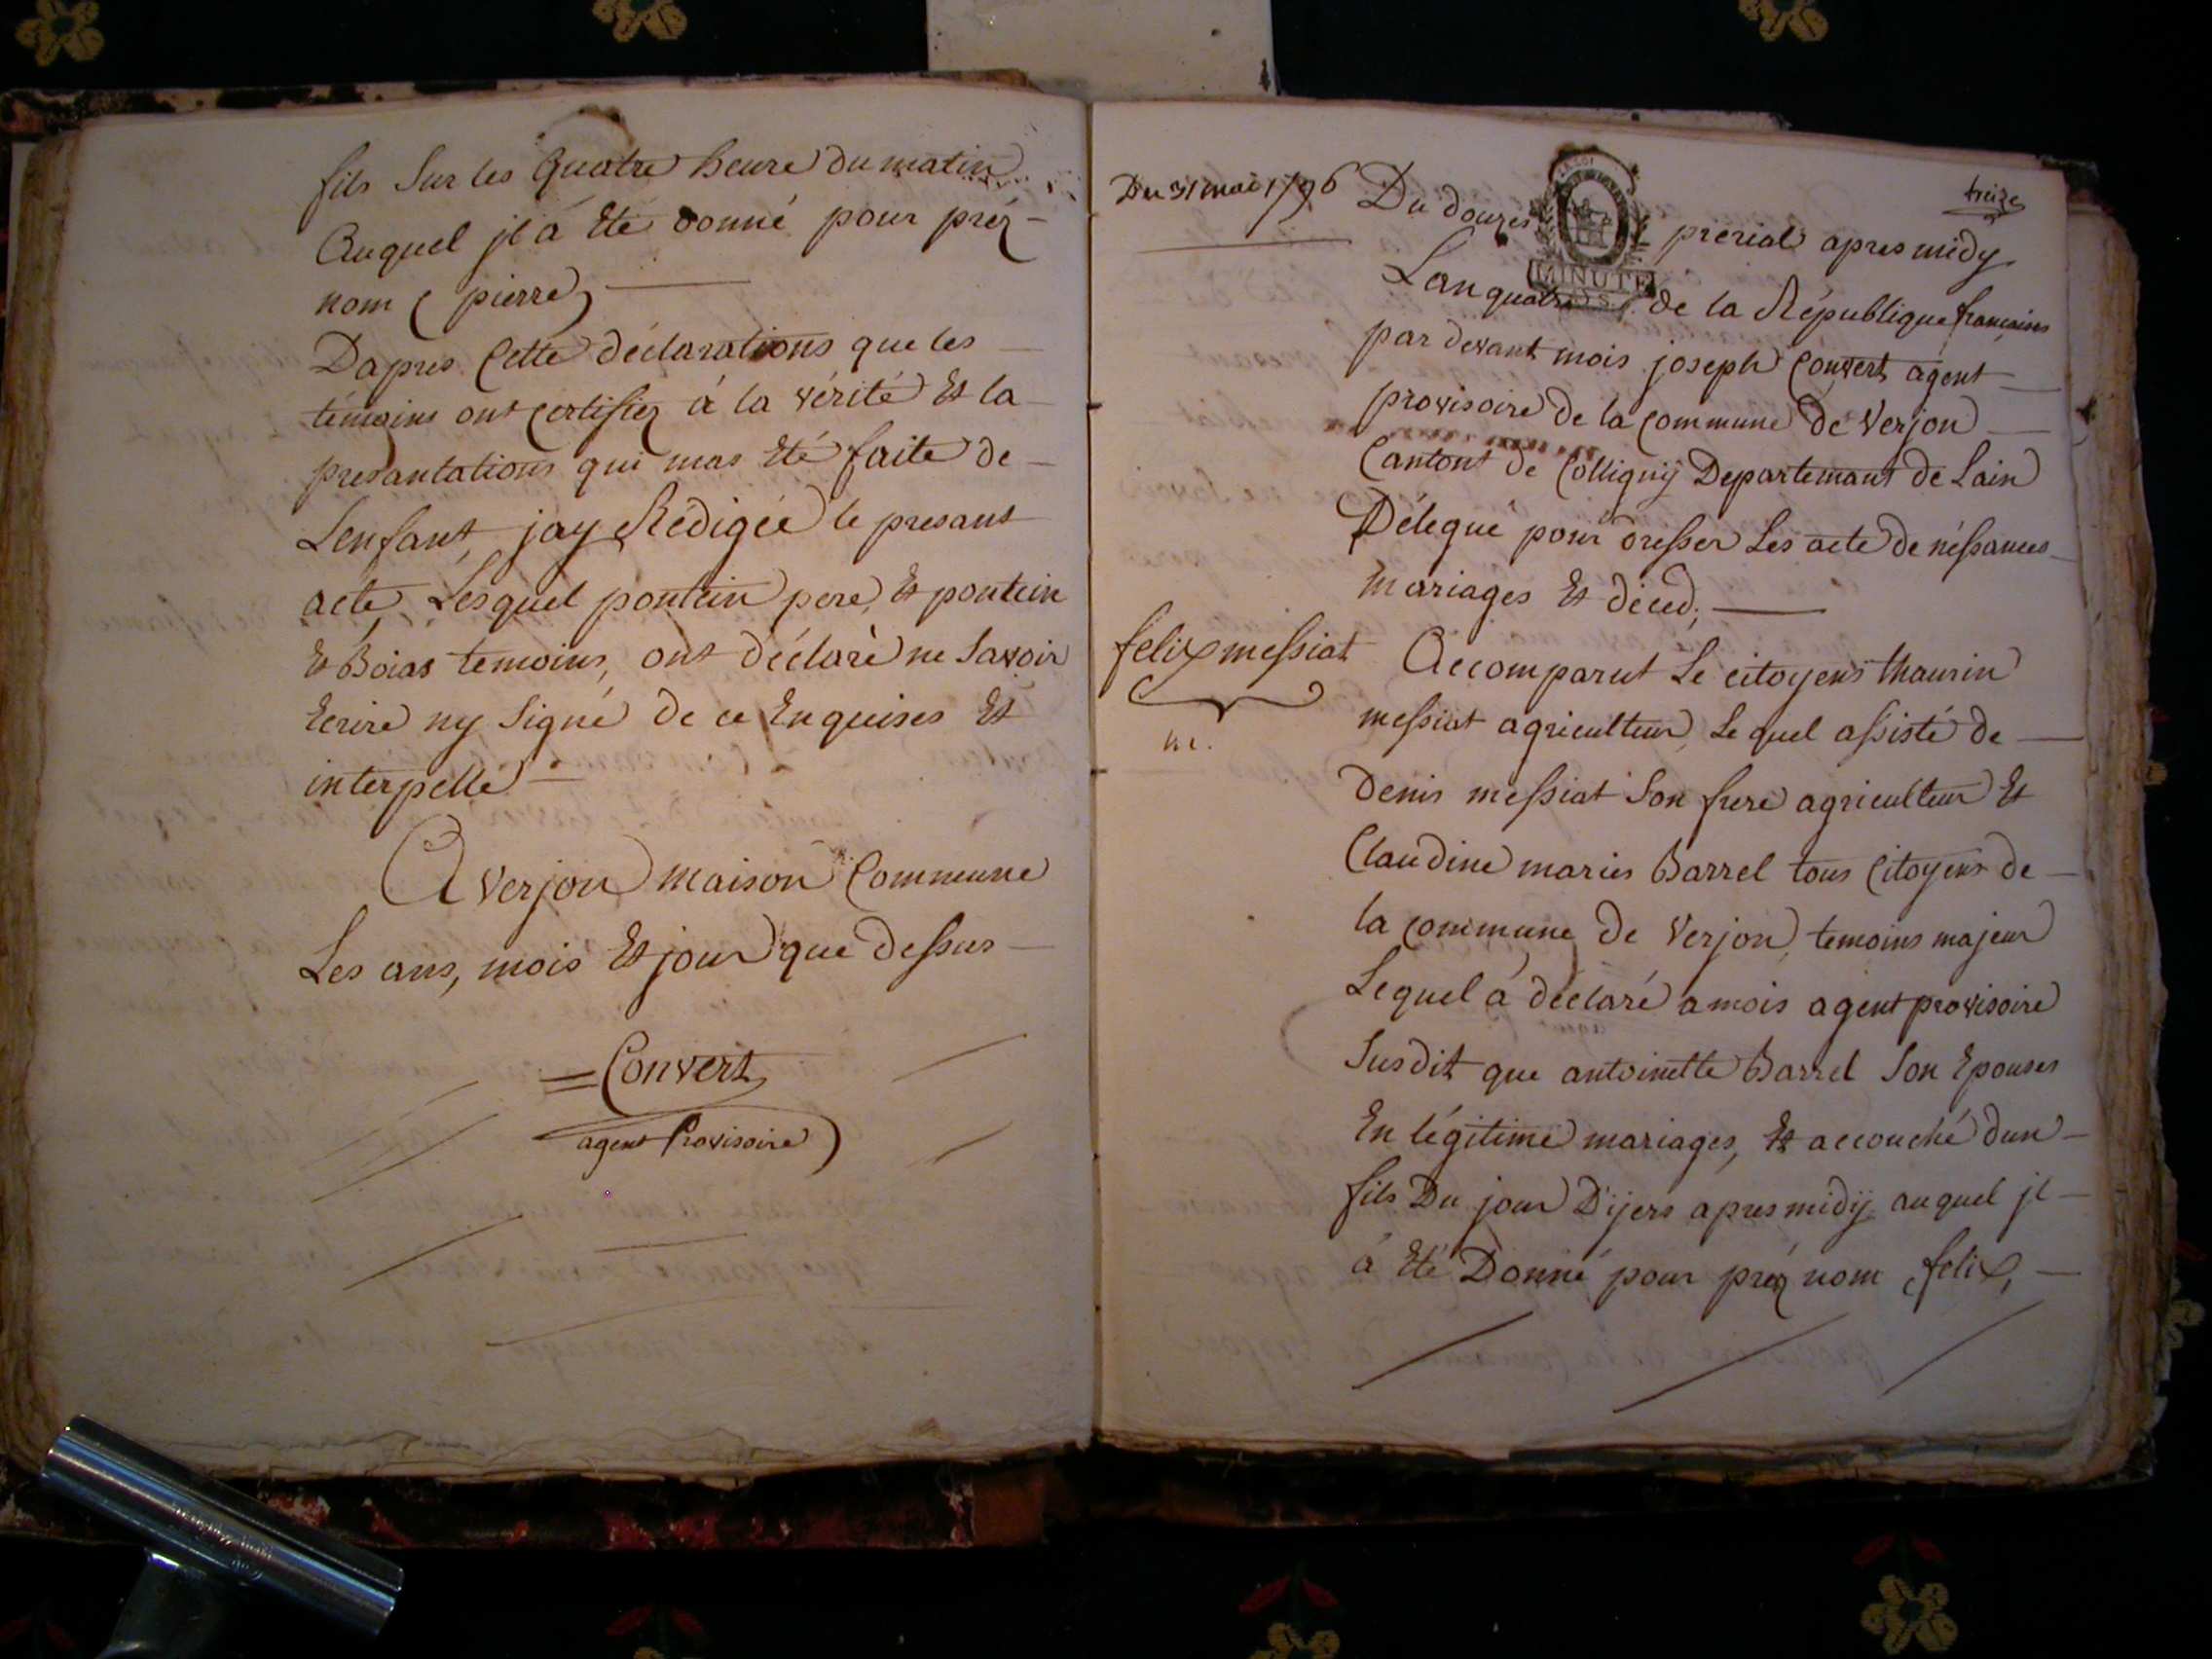 fils Sur les Quatre heure du matin
Auquel jl á Eté donné pour préz-
nom ( pierre )
Dapres Cette déclarations que les
témoins ont certifiez á la vérité Et la
presantations qui mas Eté faite de
Lenfant, jay Rédigée le presant
acte, Lesquel pontein pere, Et pontein
Et Boias temoins, ont déclaré ne Savoir
Ecrire ny Signé de ce Enquises Et
interpellé
A verjon maison Commune
Les ans, mois Et jour que dessus
Convert
agent Provisoire
treize
Du 31 mai 1796
Du douzes prérial apres midy
MINUTE
Lan quatre de la République francaises
par devant mois joseph Convert agent
provisoire de la commune de Verjon
Cantont de Collignÿ Departemant de Lain
Délegué pour dresser Les acte de néssances
mariages Et déced;
felix messiat
n.
Accomparut Le citoyens thaurin
messiat agriculteur, Le quel assisté de
denis messiat Son frere agriculteur Et
Claudine maries Barrel tous Citoyens de
la commune de Verjon, temoins majeur
Lequel á déclaré a mois agent provisoire
Susdit que antoinette Barrel Son Epouses
En légitime mariages, Et accouché dun
fils Du jour D'ijers apres midÿ auquel jl
á Eté Donné pour préz nom (felix)